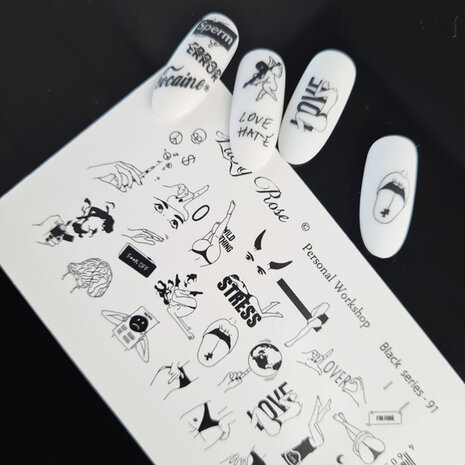 Sperm
ERROR
Cocaine®
LOVE
HATE
LOVE
Lazy Rose ©
Personal Workshop
Black series - 91
$
WILD
THING
F**K OFF
STRESS
LOVE
LOVER
I'M FINE